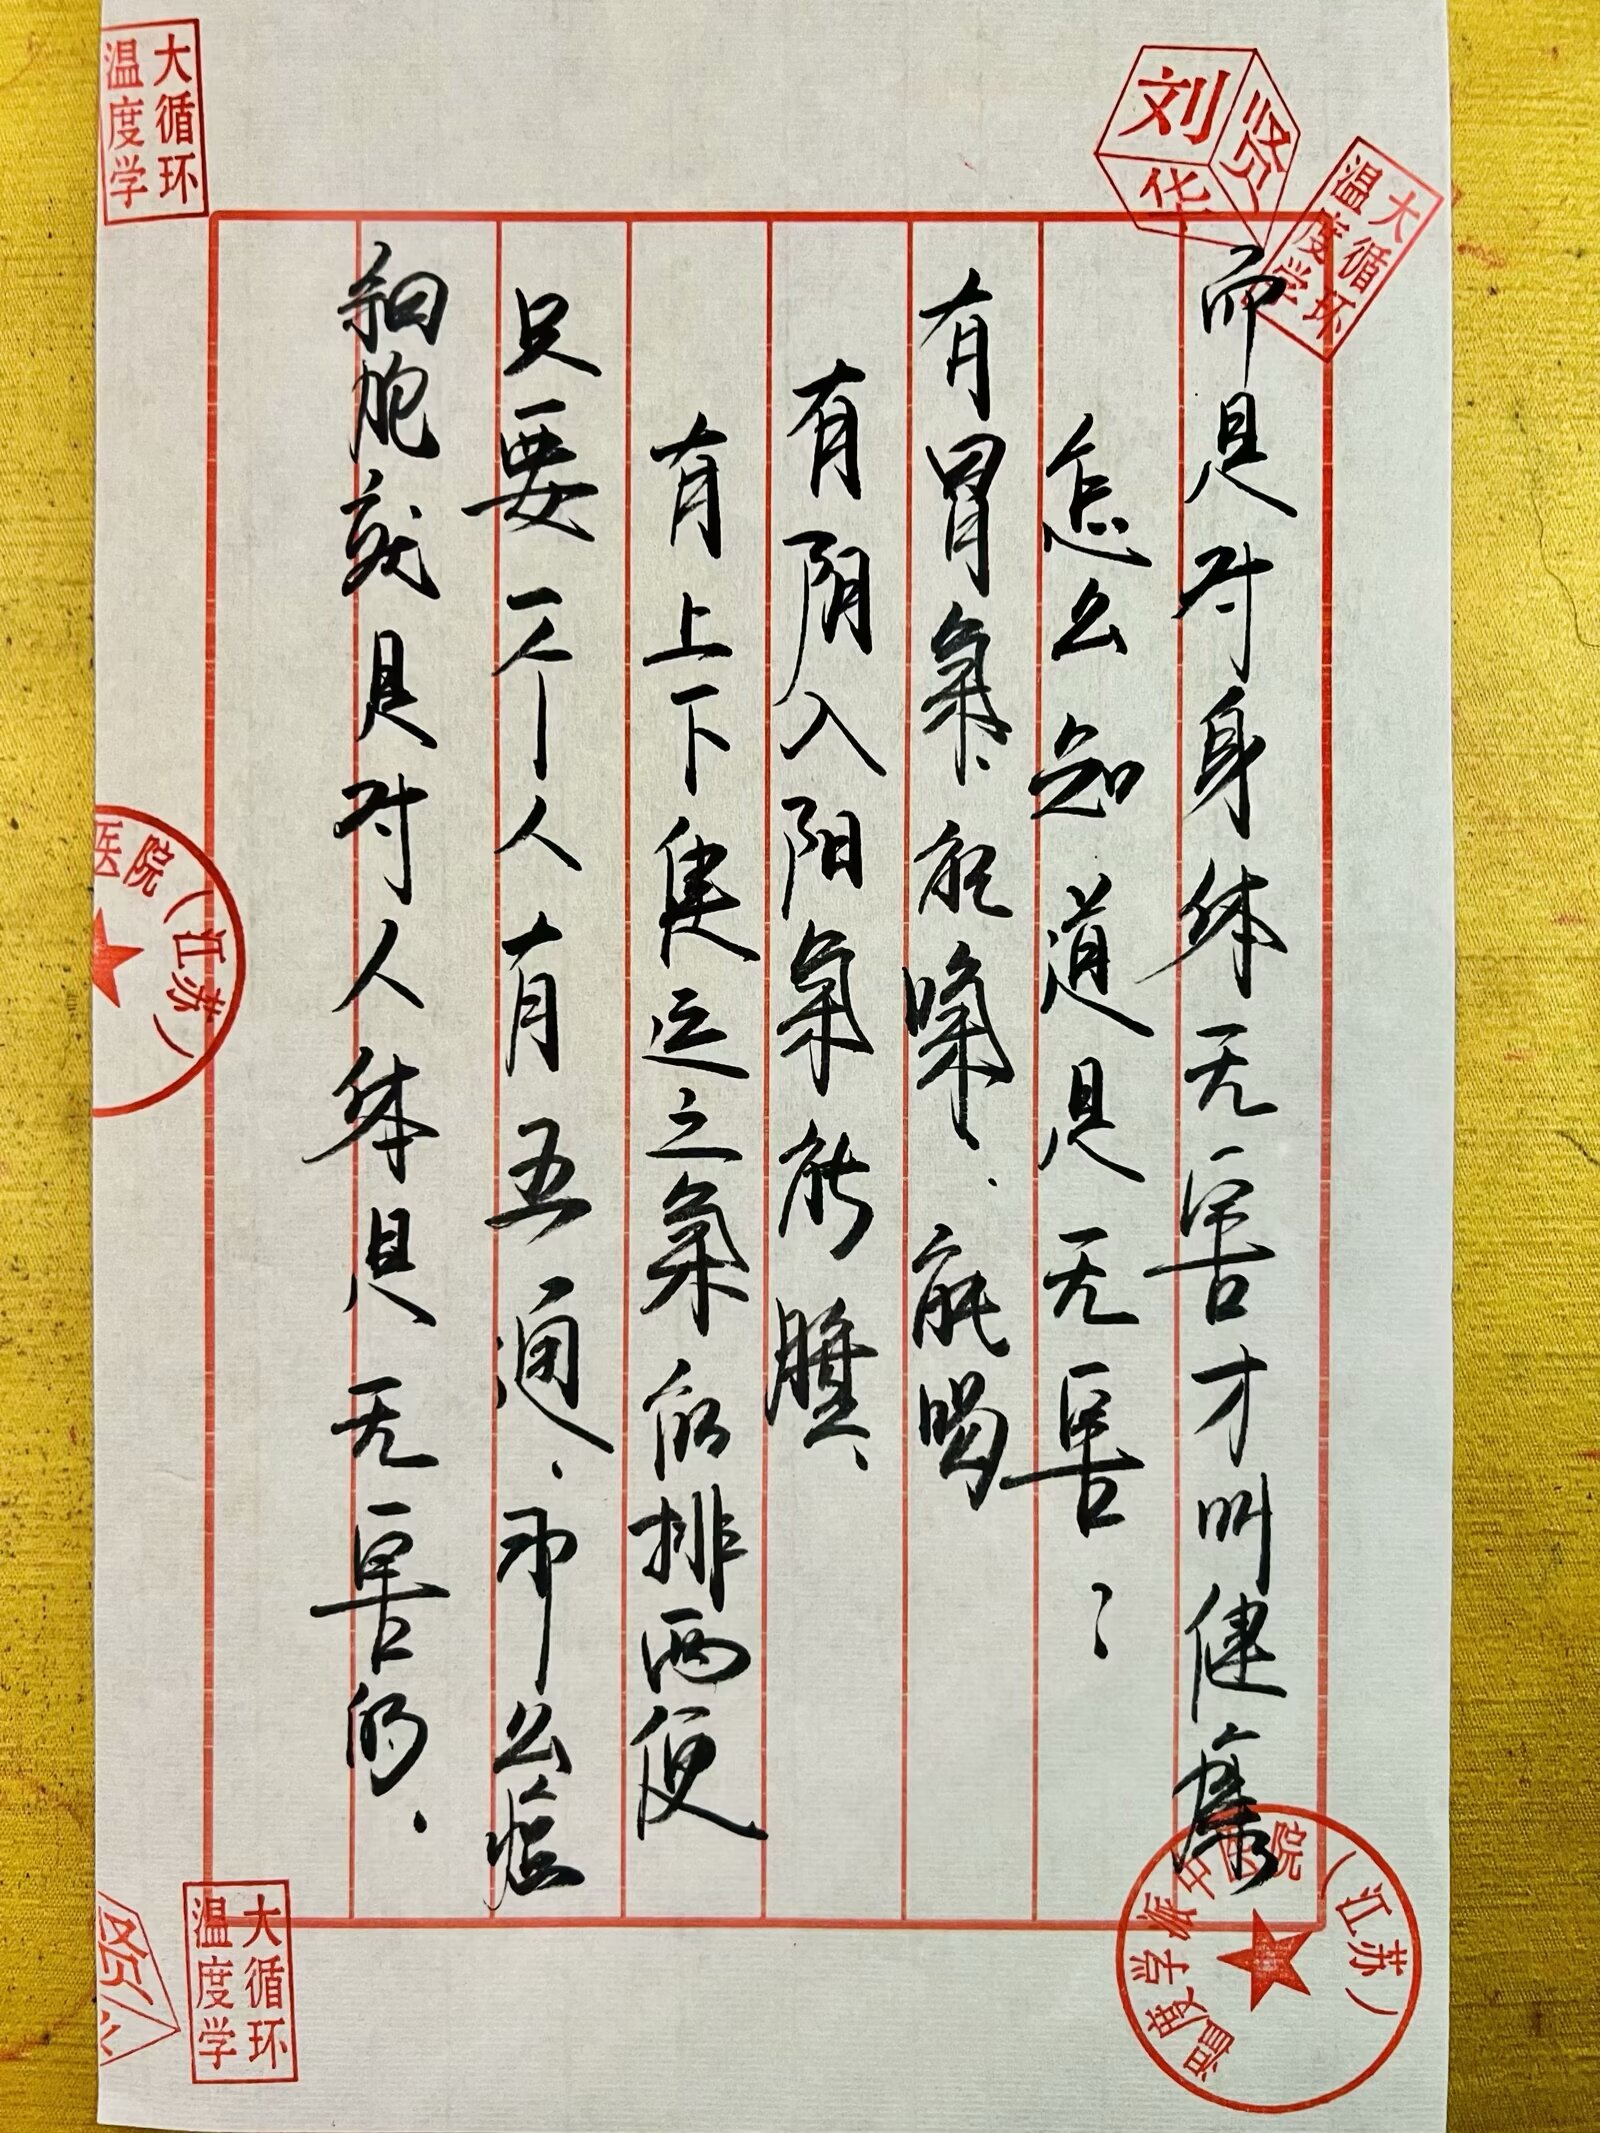 而是对身体无害才叫健康
怎么知道是无害：
有胃氣、能噏、能喝
有阴入阳氣能臟、
有上下健运之氣能排两便
只要一个人有五通、那么癌
細胞就是对人体是无害的.
大循环
温度学
刘贤华
大循环
温度学
医院（江苏）
大循环
温度学
贤
温度学派中医院（江苏）